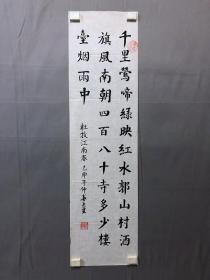 千里鶯啼綠映紅水郭山村酒
旗風南朝四百八十寺多少樓
臺烟雨中
杜牧江南春己卯年仲春